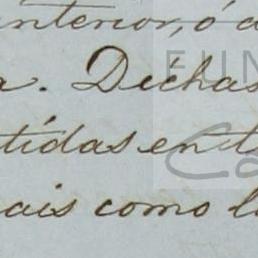 interior, ó a
a. Dichas
tidas en t
ais como l
FUN